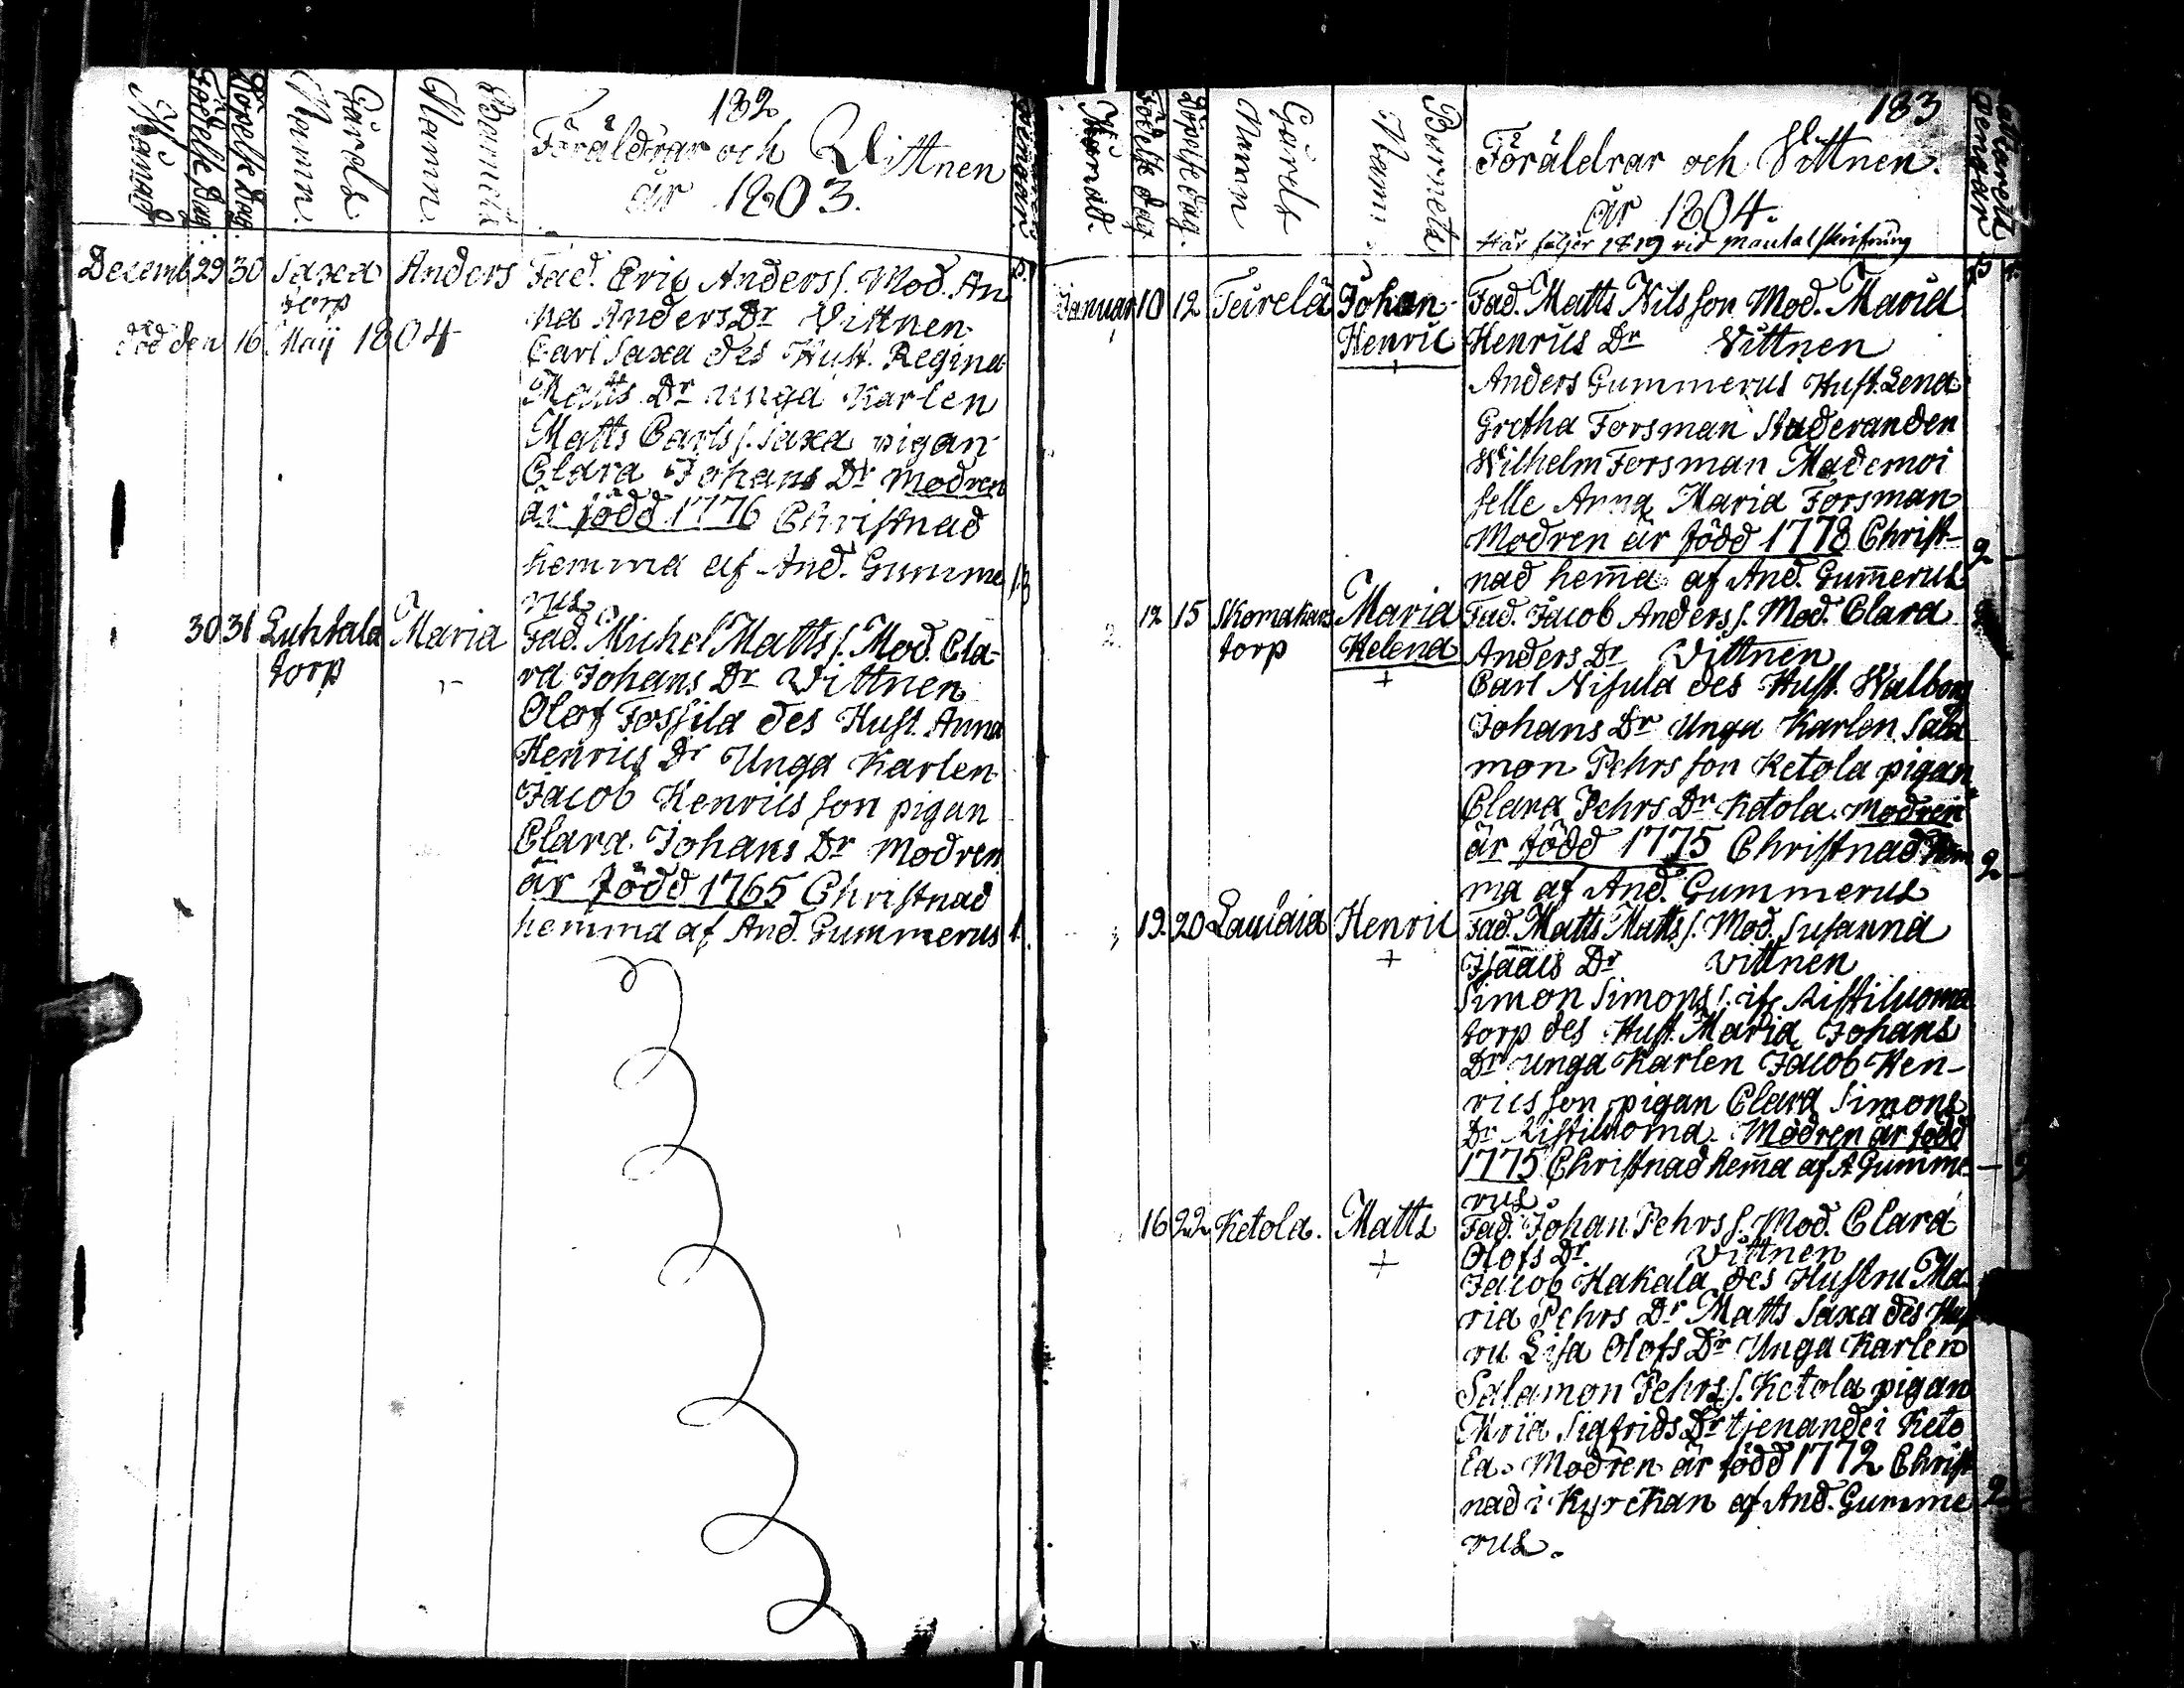 182
Månad
Födelse Dag.
Döpelse Dag.
Gårds Namn.
Barnets Namn.
Föräldrar och Vittnen
år 1803.
Decemb. 29 30 Saxa torp Anders
Fad. Eric Anders s. Mod. An
na Anders Dr Vittnen
Carl Saxa des Hust. Regina
Matts Dr unga Karlen
Matts Carls s. Saxa pigan
Clara Johans Dr modren
är född 1776 Christnad
hemma af And. Gumme
rus
död den 16 Maij 1804
30 31 Luhtala torp Maria
Fad. Michel Matts s. Mod. Cla-
ra Johans Dr Vittnen
Olof Fossila des Hust. Anna
Henrics Dr Unga Karlen
Jacob Henrics son pigan
Clara Johans Dr modren
är född 1765 Christnad
hemma af And. Gummerus 1.
183
Månad.
Födelse dag
Döpelse dag.
Gårds Namn
Barnets Namn
Föräldrar och Vittnen.
år 1804.
Här följer 1819 vid mantalskrifning
Januar 10 12 Teirela Johan Henric
Fad. Matts Nilsson Mod. Maria
Henrics Dr Vittnen
Anders Gummerus Hust. Lena
Gretha Forsman Studeranden
Wilhelm Forsman Mademoi
selle Anna Maria Forsman
Modren är född 1778 Christ-
nad hem̄a af And. Gum̄erus 2
12 15 Skomakars torp Maria Helena
Fad. Jacob Anders s. Mod. Clara
Anders Dr Vittnen
Carl Nisula des Hust. Walborg
Johans Dr Unga Karlen Sala
mon Pehrs son Ketola pigan
Clara Pehrs Dr Ketola. Modren
är född 1775 Christnad hem
ma af And. Gummerus 2
19. 20 Laulaia Henric
Fad. Matts Matts s. Mod. Susanna
Isaacs Dr Vittnen
Simon Simons s. ifr Ristiluoma
torp des Hust. Maria Johans
Dr Unga Karlen Jacob Hen-
rics son pigan Clara Simons
Dr Ristiluoma. Modren är född
1775 Christnad hem̄a af A Gumme
rus
16 22 Ketola. Matts
Fad. Johan Pehrs s. Mod. Clara
Olofs Dr. Vittnen
Jacob Hakala des Hustru Ma
ria Pehrs Dr Matts Saxa des Hust
ru Lisa Olofs Dr Unga Karlen
Salamon Pehrs s. Ketola pigan
Maria Sigfrids Dr tjenande i Keto
la. Modren är född 1772 Christ
nad i Kyrckan af And. Gumme 2
rus.